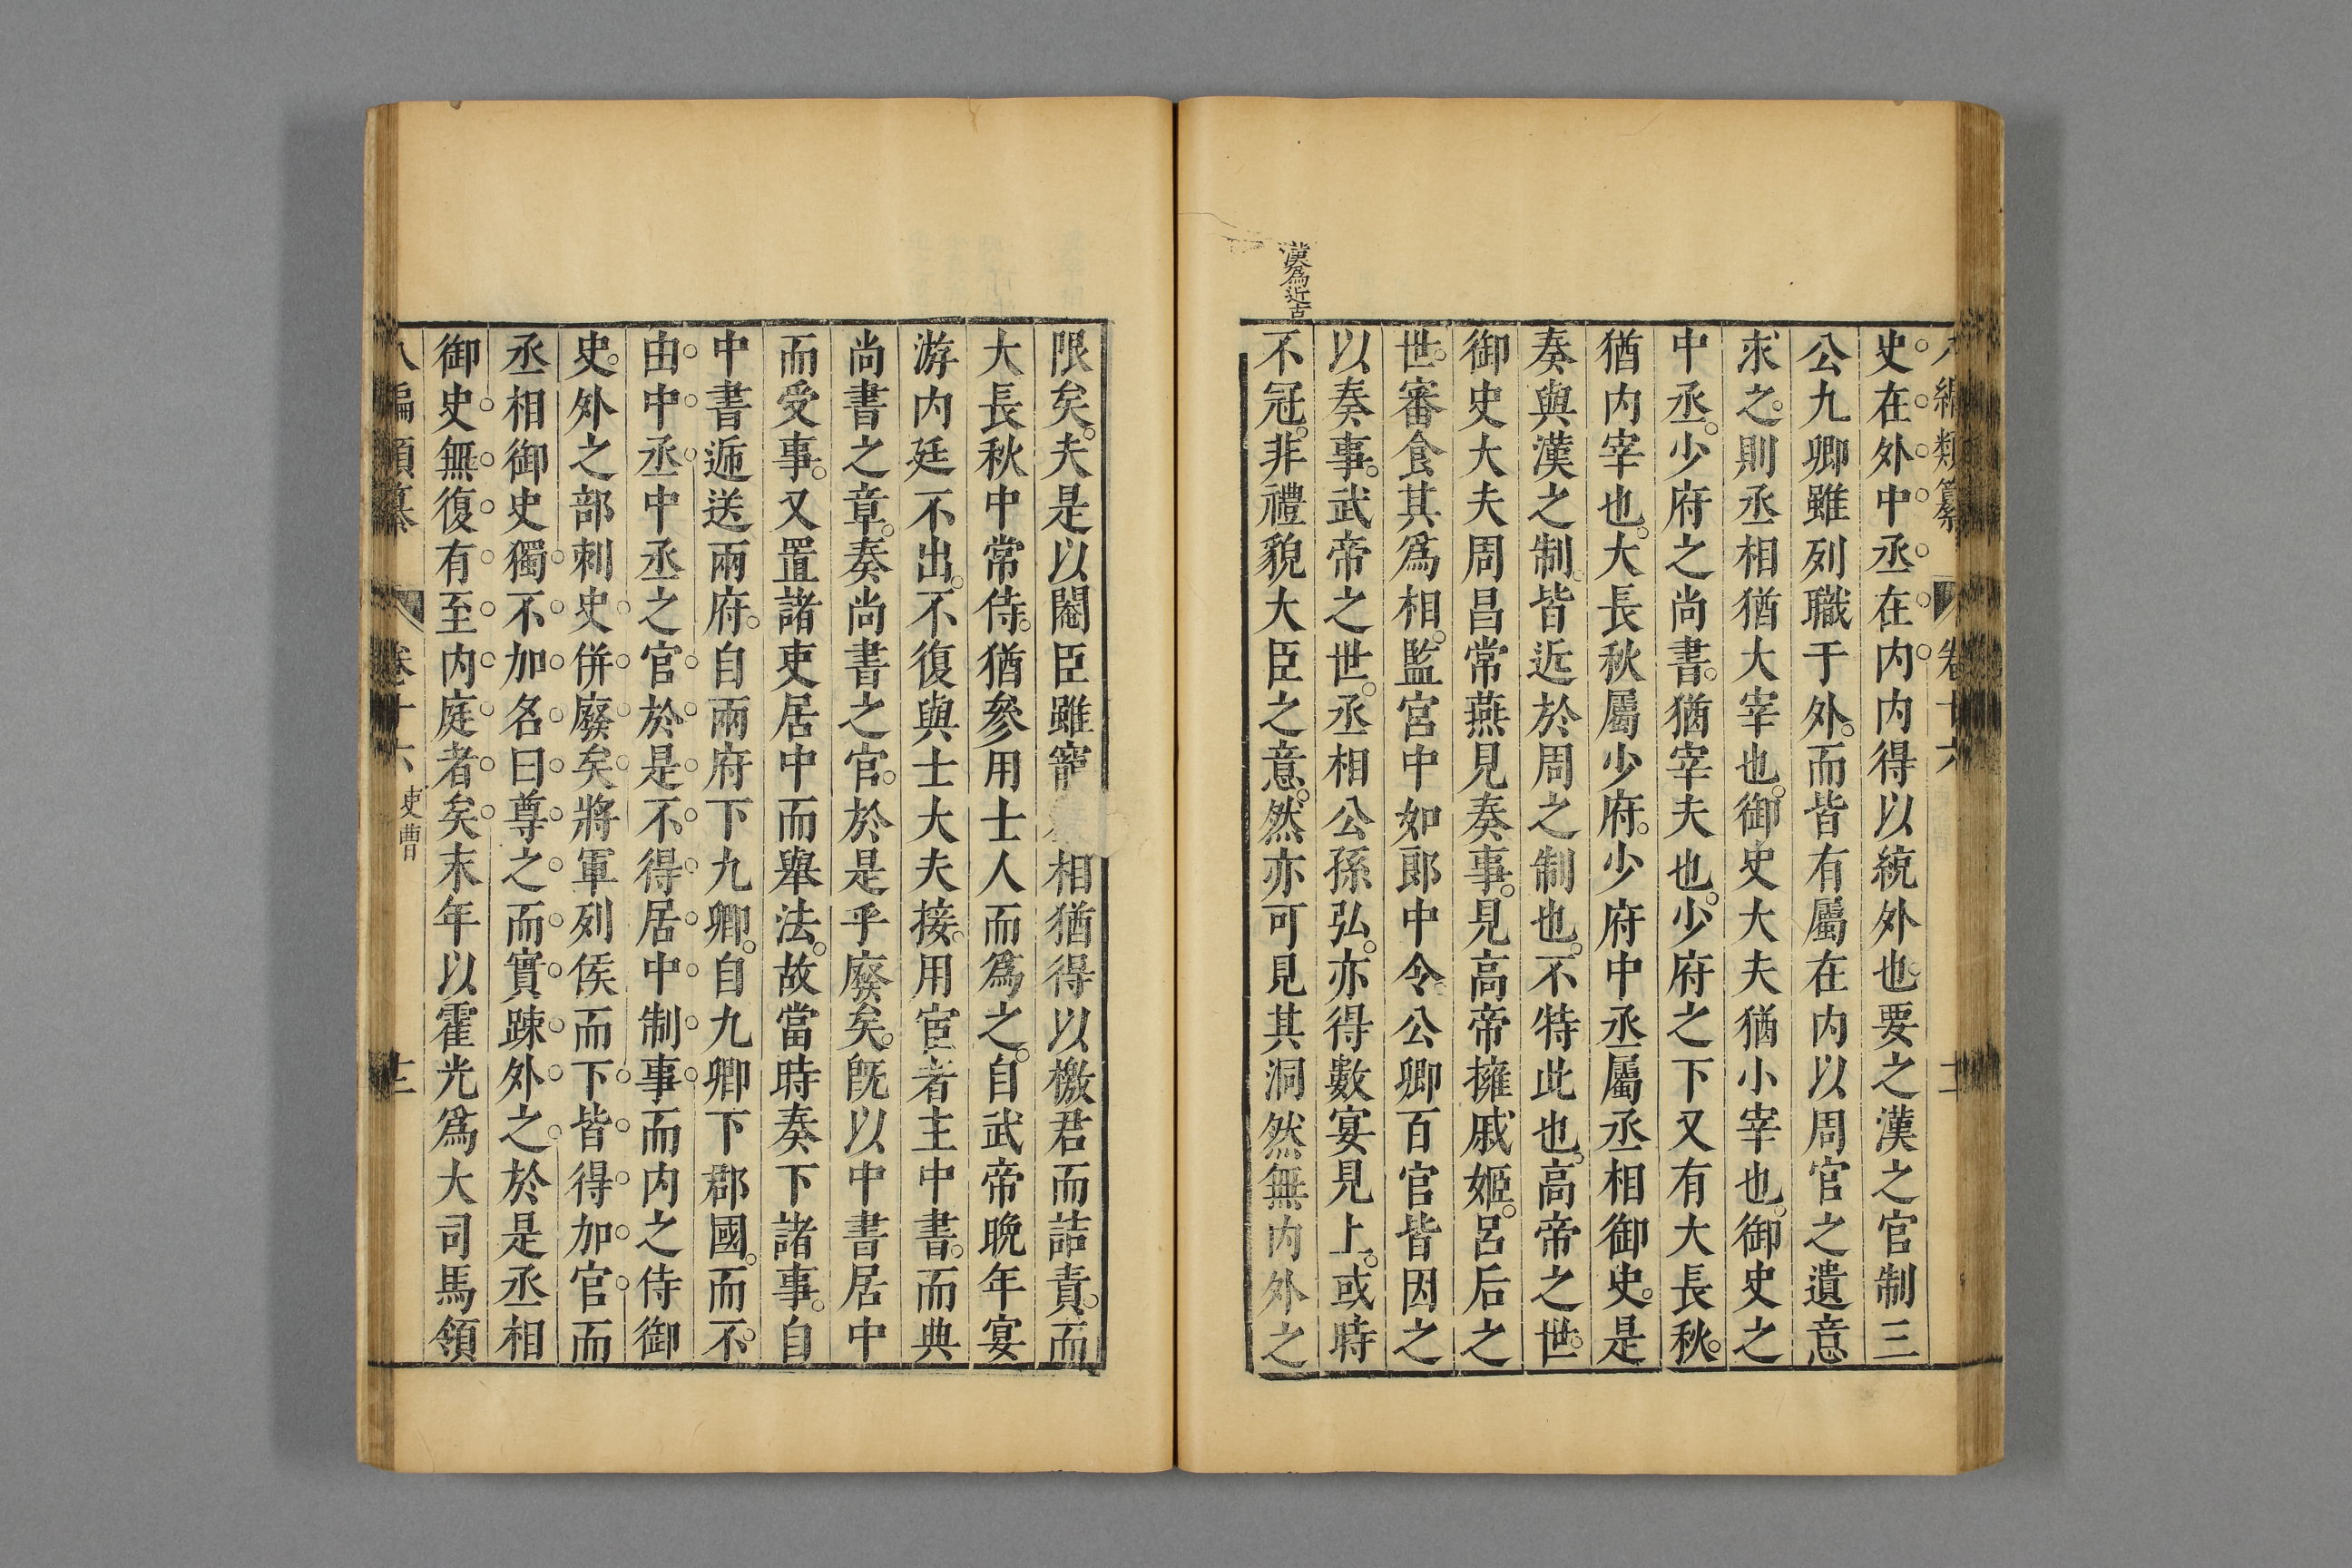 漢爲近古
史在外中丞在内内得以統外也要之漢之官制三
公九卿雖列職于外而皆有屬在内以周官之遺意
求之則丞相猶大宰也御史大夫猶小宰也御史之
中丞少府之尚書猶宰夫也少府之下又有大長秋
猶内宰也大長秋屬少府少府中丞屬丞相御史是
奏與漢之制皆近於周之制也不特此也高帝之世
御史大夫周昌常燕見奏事見高帝擁戚姬呂后之
世審食其爲相監宮中如郎中令公卿百官皆因之
以奏事武帝之世丞相公孫弘亦得數宴見上或時
不冠非禮貌大臣之意然亦可見其洞然無内外之
限矣夫是以閹臣雖寵相猶得以檄君而詰責而
大長秋中常侍猶參用士人而爲之自武帝晚年宴
游内廷不出不復與士大夫接用宦者主中書而典
尚書之章奏尚書之官於是乎廢矣旣以中書居中
而受事又置諸吏居中而舉法故當時奏下諸事自
中書遞送兩府自兩府下九卿自九卿下郡國而不
由中丞中丞之官於是不得居中制事而内之侍御
史外之部刺史併廢矣將軍列侯而下皆得加官而
丞相御史獨不加名曰尊之而實踈外之於是丞相
御史無復有至内庭者矣末年以霍光爲大司馬領
吏曹